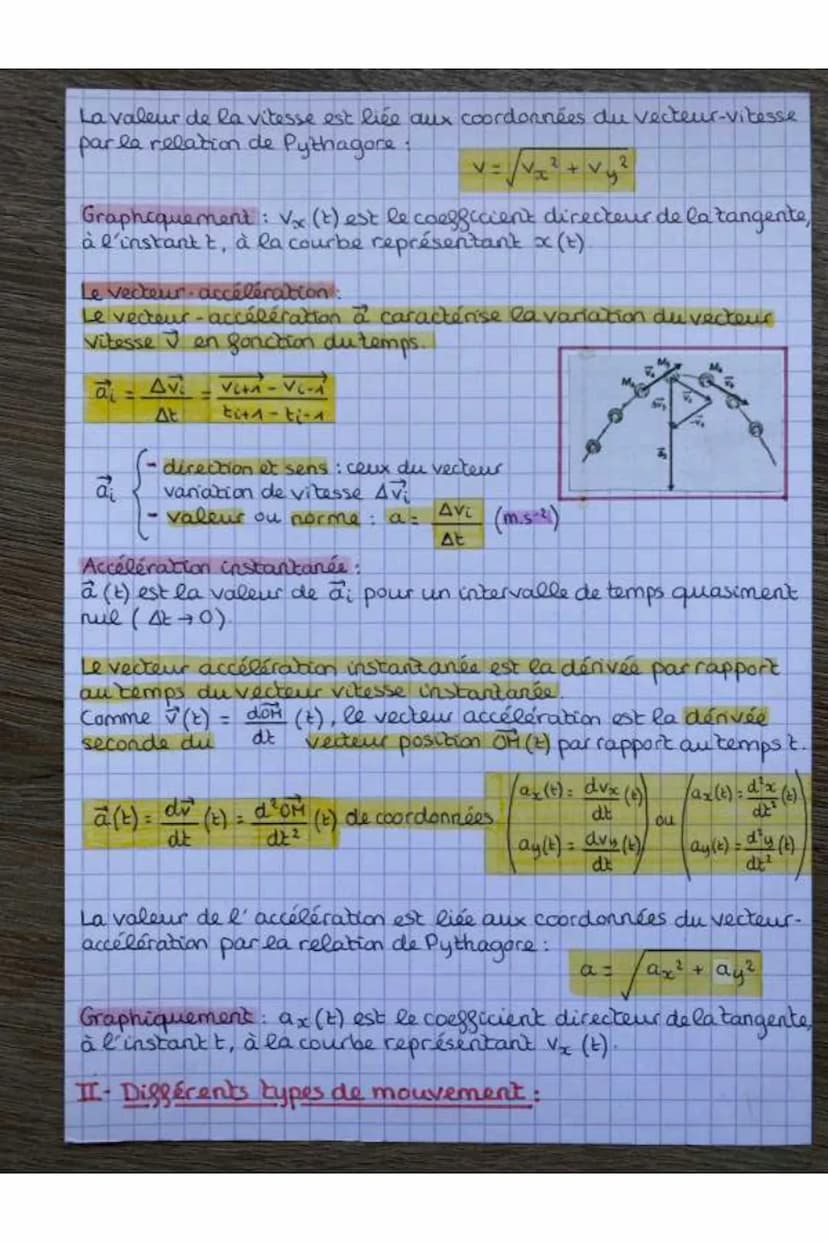 La valeur de la vitesse est liée aux coordonnées du vecteur-vitesse
par la relation de Pythagore :
v = √(vx² + vy²)
Graphiquement : vx (t) est le coefficient directeur de la tangente,
à l'instant t, à la courbe représentant x(t)
Le vecteur-accélération :
Le vecteur-accélération a⃗ caractérise la variation du vecteur
vitesse v⃗ en fonction du temps.
a⃗i = Δv⃗i / Δt = (v⃗i+1 - v⃗i-1) / (ti+1 - ti-1)
a⃗i { - direction et sens : ceux du vecteur
variation de vitesse Δv⃗i
- valeur ou norme : a = Δvi / Δt (m.s⁻²)
Accélération instantanée :
a⃗ (t) est la valeur de a⃗i pour un intervalle de temps quasiment
nul (Δt → 0)
Le vecteur accélération instantanée est la dérivée par rapport
au temps du vecteur vitesse instantanée.
Comme v⃗(t) = dOM⃗/dt (t), le vecteur accélération est la dérivée
seconde du vecteur position OM⃗(t) par rapport au temps t.
a⃗(t) = dv⃗/dt (t) = d²OM⃗/dt² (t) de coordonnées (ax(t) = dvx/dt (t) ay(t) = dvy/dt (t)) ou (ax(t) = d²x/dt² (t) ay(t) = d²y/dt² (t))
La valeur de l'accélération est liée aux coordonnées du vecteur-
accélération par la relation de Pythagore :
a = √(ax² + ay²)
Graphiquement : ax (t) est le coefficient directeur de la tangente,
à l'instant t, à la courbe représentant vx (t).
II- Différents types de mouvement :